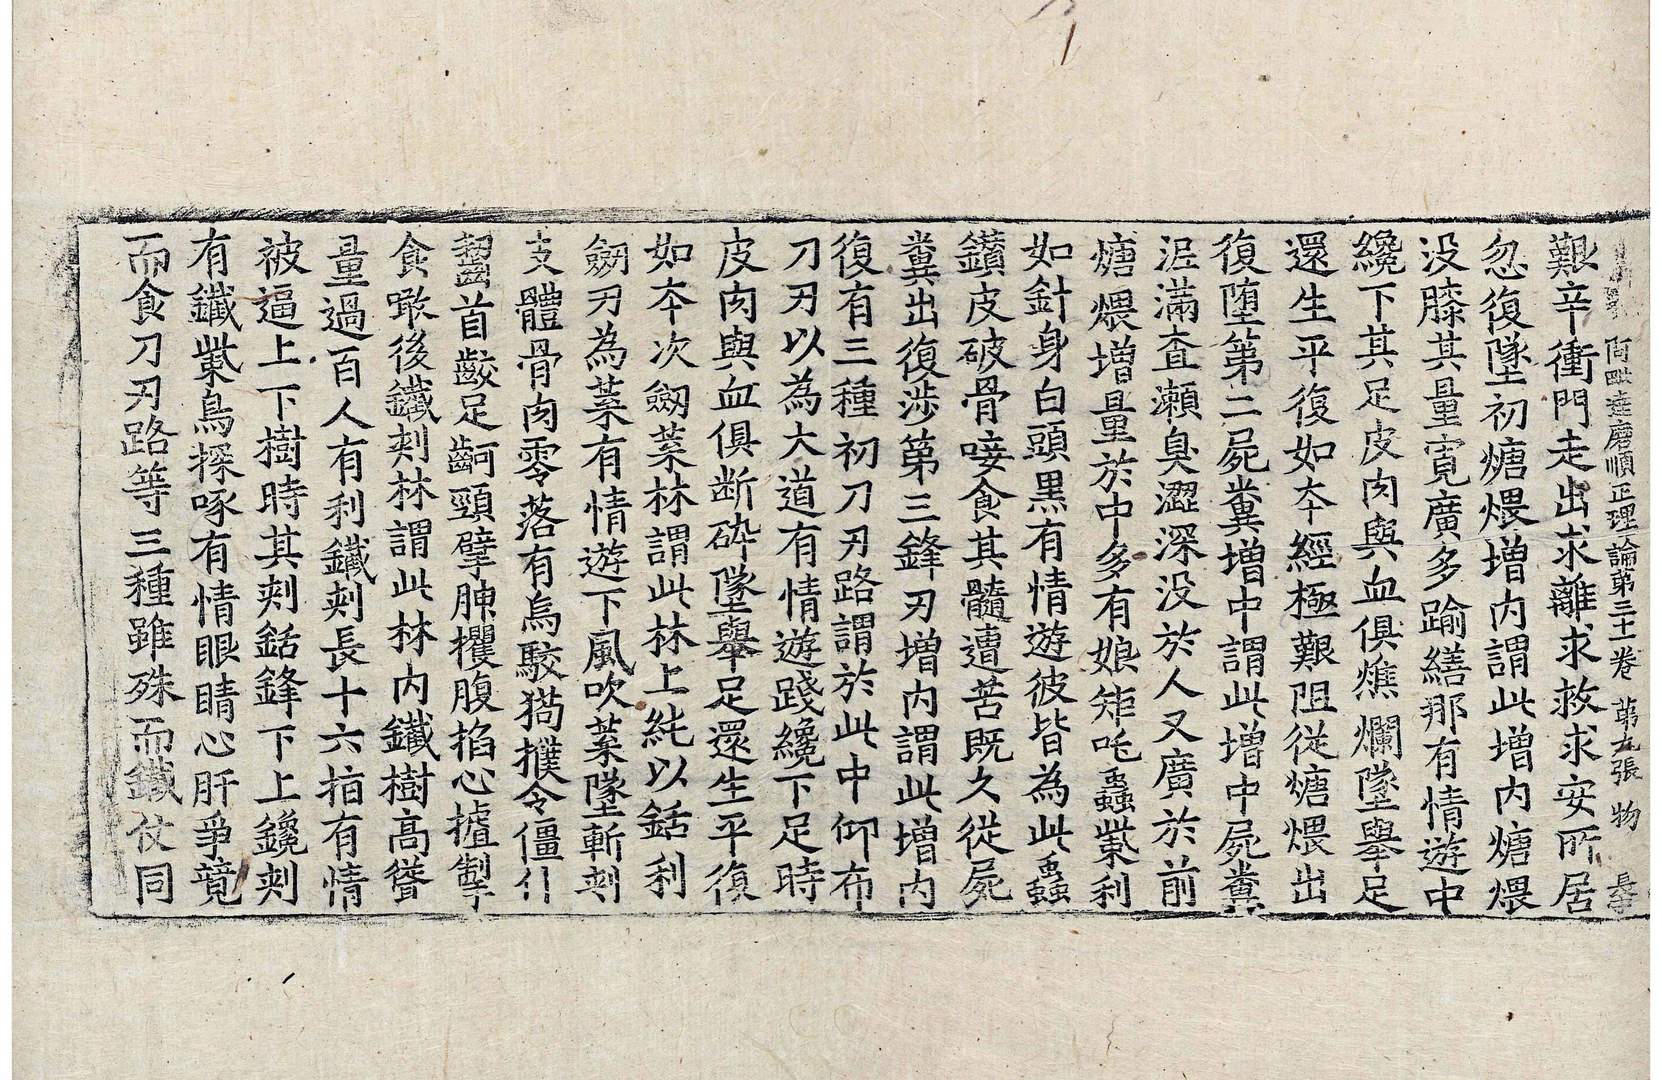 阿毗達磨順正理論第三十一卷 第九張 物
艱辛衝門走出求離求救求安所居
忽復墜初煻煨增內謂此增內煻煨
没膝其量寬廣多踰繕那有情遊中
纔下其足皮肉與血俱燋爛墜舉足
還生平復如本經極艱阻從煻煨出
復墮第二屍糞增中謂此增中屍糞
泥滿查瀨臭澀深没於人又廣於前
煻煨增量於中多有娘矩吒蟲㭰利
如針身白頭黑有情遊彼皆為此蟲
鑽皮破骨唼食其髓遭苦既久從屍
糞出復涉第三鋒刃增內謂此增內
復有三種初刀刃路謂於此中仰布
刀刃以為大道有情遊踐纔下足時
皮肉與血俱斷碎墜舉足還生平復
如本次劒葉林謂此林上純以銛利
劒刃為葉有情遊下風吹葉墜斬刺
支體骨肉零落有烏駮猲㩧令僵仆
齧首齩足䶗頸擘腖攫腹掐心揸掣
食噉後鐵刺林謂此林內鐵樹高聳
量過百人有利鐵刺長十六指有情
被逼上下樹時其刺銛鋒下上鑱刺
有鐵㭰鳥探啄有情眼睛心肝爭競
而食刀刃路等三種雖殊而鐵仗同